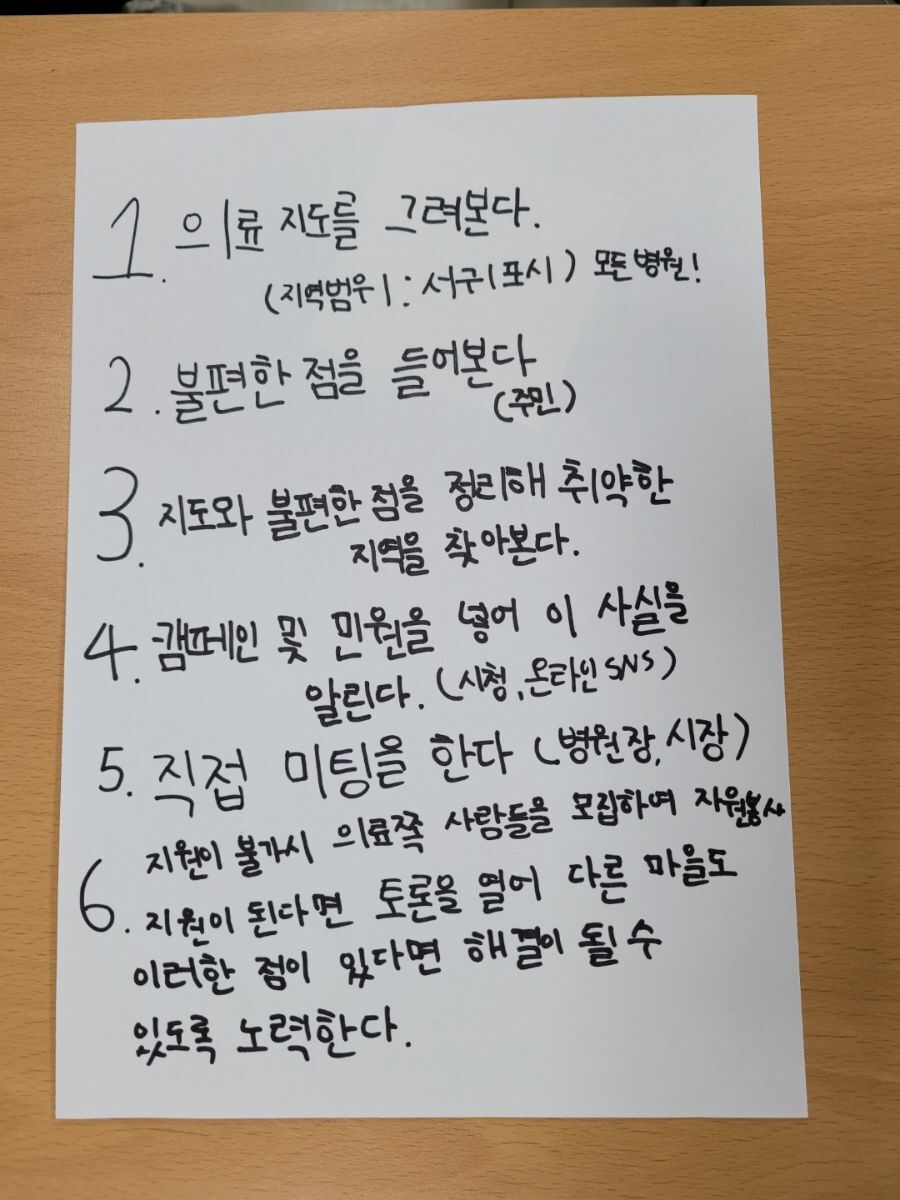 1. 의료 지도를 그려본다.
(지역범위 : 서귀포시) 모든 병원!
2. 불편한 점을 들어본다
(주민)
3. 지도와 불편한 점을 정리해 취약한
지역을 찾아본다.
4. 캠페인 및 민원을 넣어 이 사실을
알린다. (시청, 온라인 SNS)
5. 직접 미팅을 한다 (병원장, 시장)
지원이 불가시 의료쪽 사람들을 모집하여 자원봉사
6. 지원이 된다면 토론을 열어 다른 마을도
이러한 점이 있다면 해결이 될 수
있도록 노력한다.